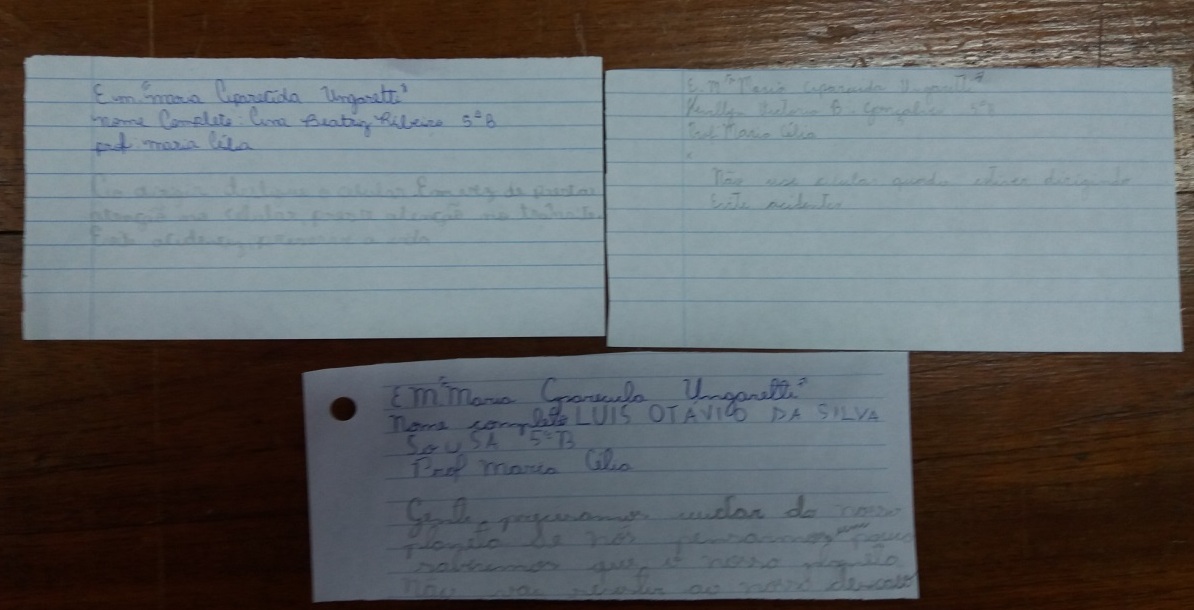 E.m. "maria Aparecida Ungaretti"
nome Completo: Ana Beatriz Ribeiro 5º B
prof: maria Célia
Ao dirigir desligue o celular Em vez de prestar
atenção no celular, preste atenção no trânsito.
Evite acidentes, preserve a vida
E.M "Maria Aparecida Ungaretti"
Victoria B. Gonçalves 5º B
Prof Maria Célia
Não use celular quando estiver dirigindo
Evite acidentes
E M. "Maria Aparecida Ungaretti"
Nome completo LUIS OTÁVIO DA SILVA
SOUSA 5º B
Prof Maria Célia
Gente, precisamos cuidar do nosso
planeta se nós pensarmos um pouco
saberemos que o nosso planeta
Não vai resistir ao nosso descaso